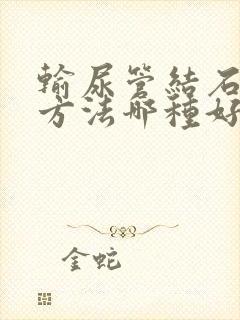 輸尿管結石
方法哪種好
金蛇